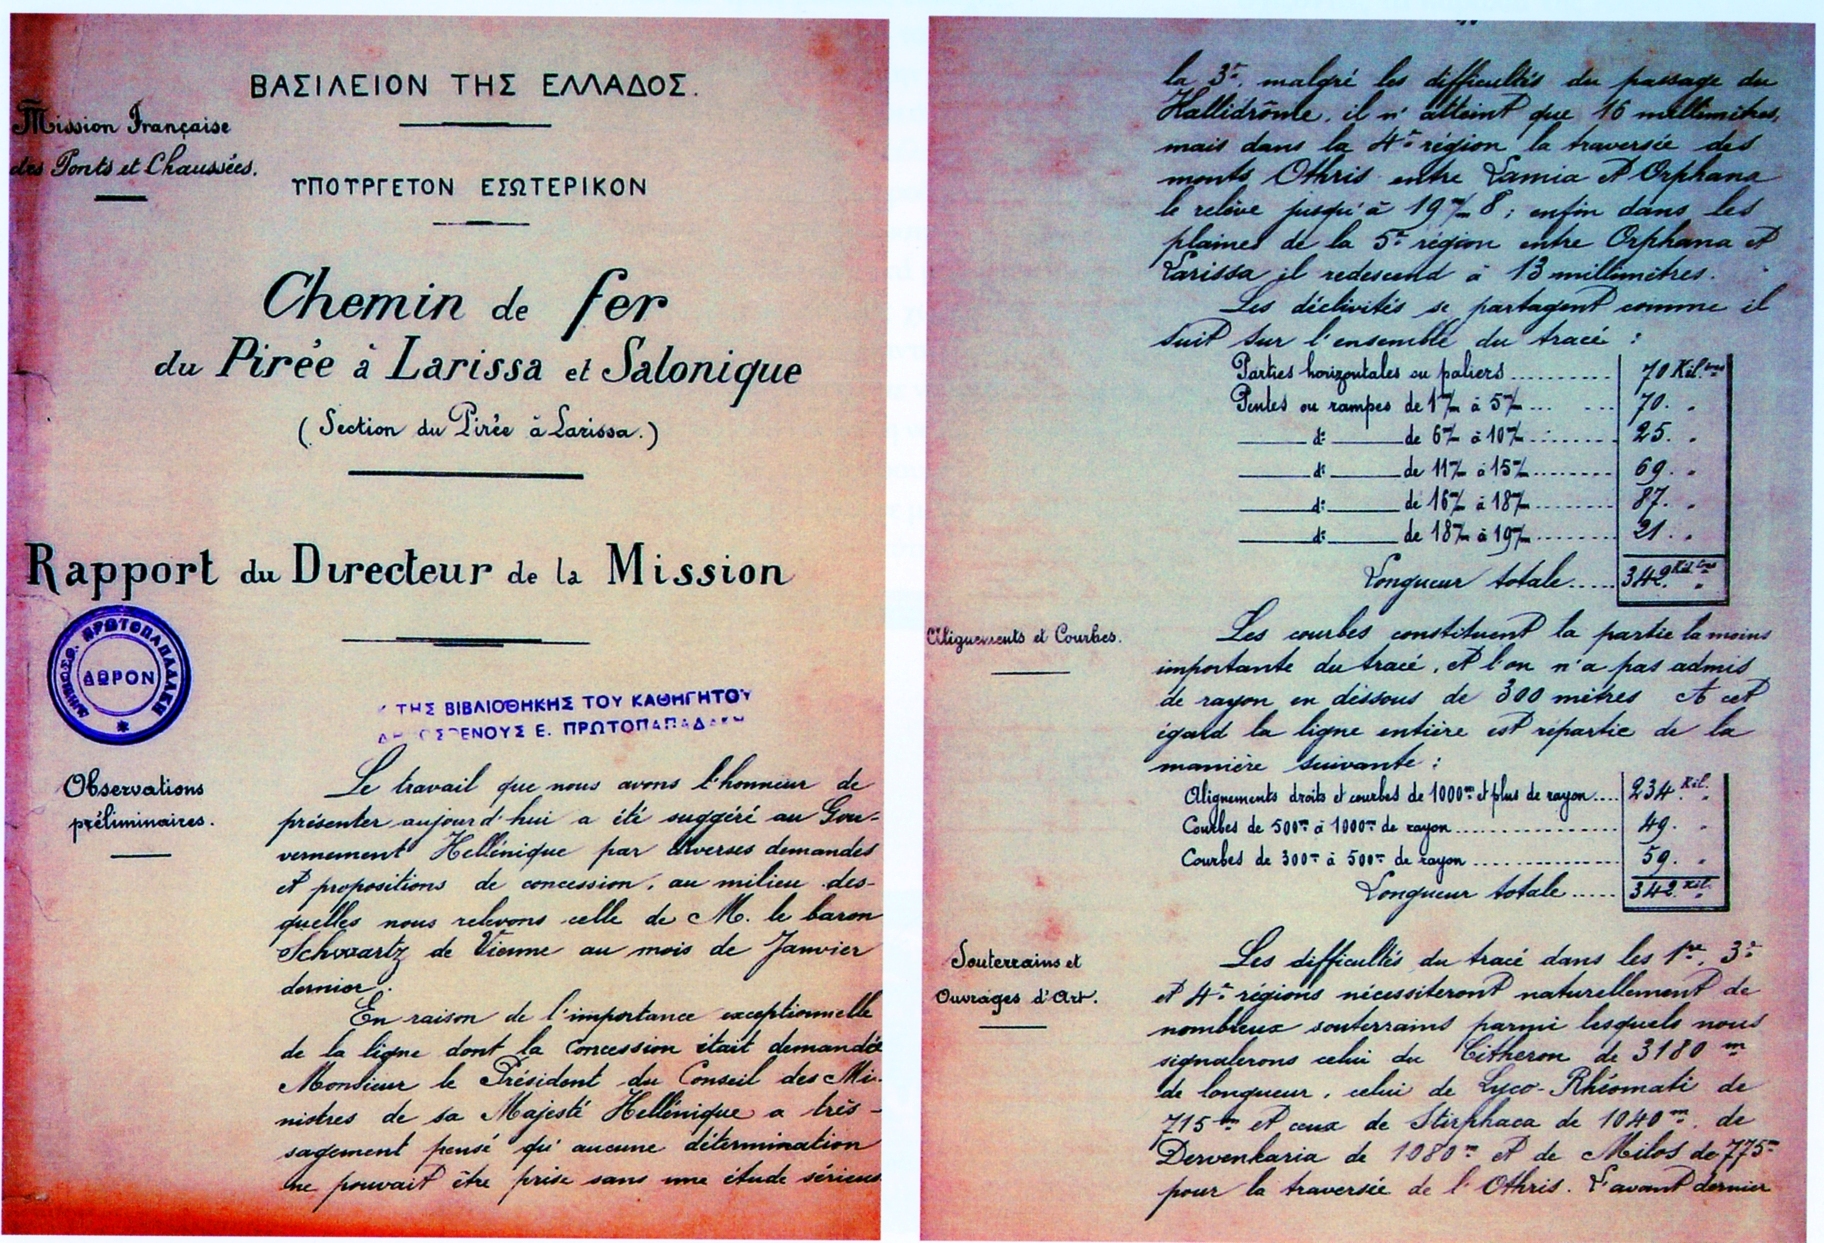 ΒΑΣΙΛΕΙΟΝ ΤΗΣ ΕΛΛΑΔΟΣ.
Mission Française
des Ponts et Chaussées.
ΥΠΟΥΡΓΕΤΟΝ ΕΣΩΤΕΡΙΚΟΝ
Chemin de fer
du Pirée à Larissa et Salonique
(Section du Pirée à Larissa.)
Rapport du Directeur de la Mission
ΔΗΜΟΣΘ. ΠΡΩΤΟΠΑΠΑΔΑΚΗ
ΔΩΡΟΝ
ΤΗΣ ΒΙΒΛΙΟΘΗΚΗΣ ΤΟΥ ΚΑΘΗΓΗΤΟΥ
ΕΝΟΥΣ Ε. ΠΡΩΤΟΠΑΠΑΔΑΚΗ
Observations
préliminaires.
Le travail que nous avons l'honneur de
présenter aujourd'hui a été suggéré au Gou-
vernement Hellénique par diverses demandes
et propositions de concession, au milieu des-
quelles nous relevons celle de M. le baron
Schwartz de Vienne au mois de Janvier
dernier.
En raison de l'importance exceptionnelle
de la ligne dont la concession était demandée
Monsieur le Président du Conseil des Mi-
nistres de sa Majesté Hellénique a très-
sagement pensé qu'aucune détermination
ne pouvait être prise sans une étude sérieuse
la 3e, malgré les difficultés du passage du
Hallidrôme, il n'atteint que 16 millimètres,
mais dans la 4e région la traversée des
monts Othris entre Lamia et Orphana
le relève jusqu'à 19 m/m 8; enfin dans les
plaines de la 5e région entre Orphana et
Larissa il redescend à 13 millimètres.
Les déclivités se partagent comme il
suit sur l'ensemble du tracé :
Parties horizontales ou paliers ........ 70 Kil.tres
Pentes ou rampes de 1m/m à 5m/m ... 70. "
d° de 6m/m à 10m/m ........ 25. "
d° de 11m/m à 15m/m ........ 69. "
d° de 16m/m à 18m/m ........ 87. "
d° de 18m/m à 19m/m ........ 21. "
Longueur totale ..... 342. Kil.tres
Alignements et Courbes.
Les courbes constituent la partie la moins
importante du tracé, et l'on n'a pas admis
de rayon en dessous de 300 mètres A cet
égard la ligne entière est répartie de la
manière suivante :
Alignements droits et courbes de 1000m et plus de rayon .... 234. Kil.
Courbes de 500m à 1000m de rayon ........ 49. "
Courbes de 300m à 500m de rayon ........ 59. "
Longueur totale ..... 342. Kil.
Souterrains et
Ouvrages d'Art.
Les difficultés du tracé dans les 1re, 3e
et 4e régions nécessiteront naturellement de
nombreux souterrains parmi lesquels nous
signalerons celui du Citheron de 3180 m
de longueur, celui de Lyco-Rhéomati de
715m et ceux de Stirphaca de 1040m, de
Dervenkaria de 1080m et de Milos de 775m
pour la traversée de l'Othris. L'avant dernier